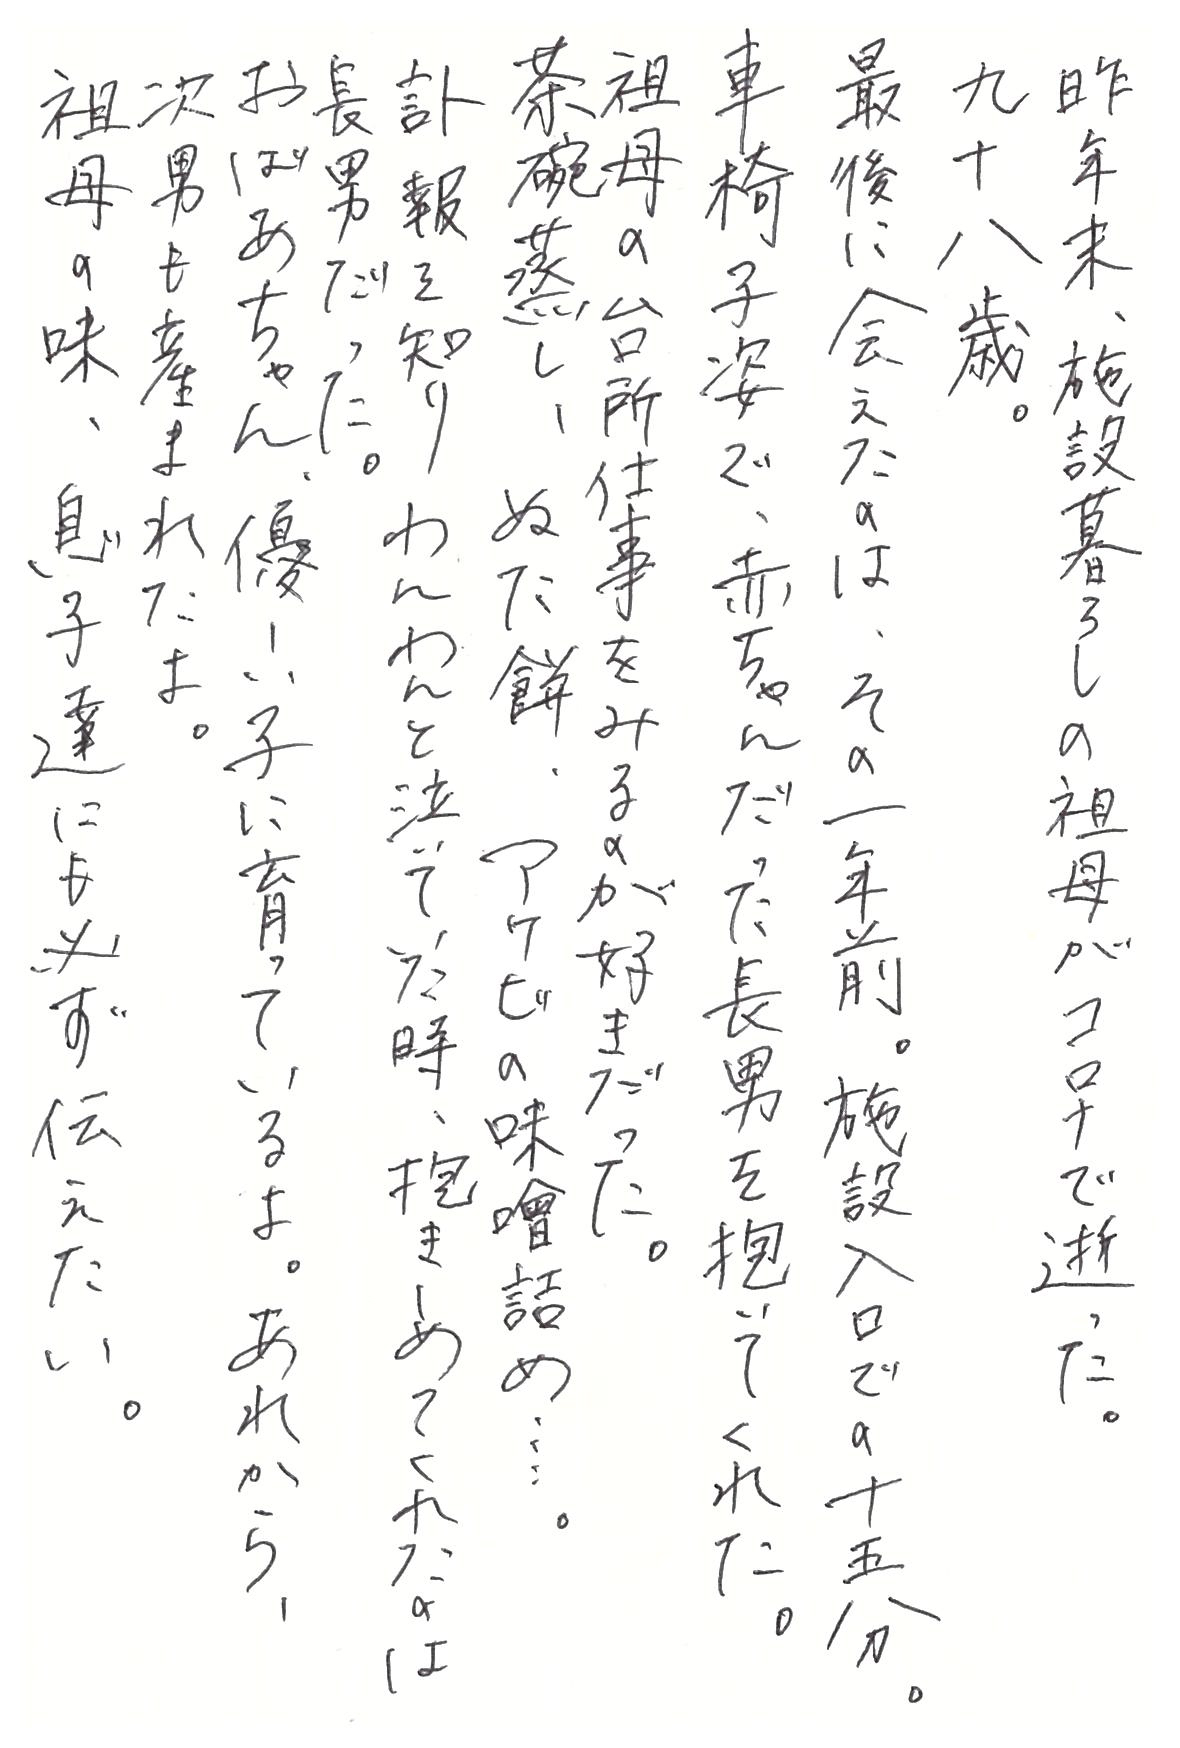 昨年末、施設暮らしの祖母がコロナで逝った。
九十八歳。
最後に会えたのは、その一年前。施設入口での十五分。
車椅子姿で、赤ちゃんだった長男を抱いてくれた。
祖母の台所仕事をみるのが好きだった。
茶碗蒸し、ぬた餅、アケビの味噌詰め…。
訃報を知りわんわんと泣いていた時、抱きしめてくれたのは
長男だった。
おばあちゃん、優しい子に育っているよ。あれから、
次男も産まれたよ。
祖母の味、息子達にも必ず伝えたい。